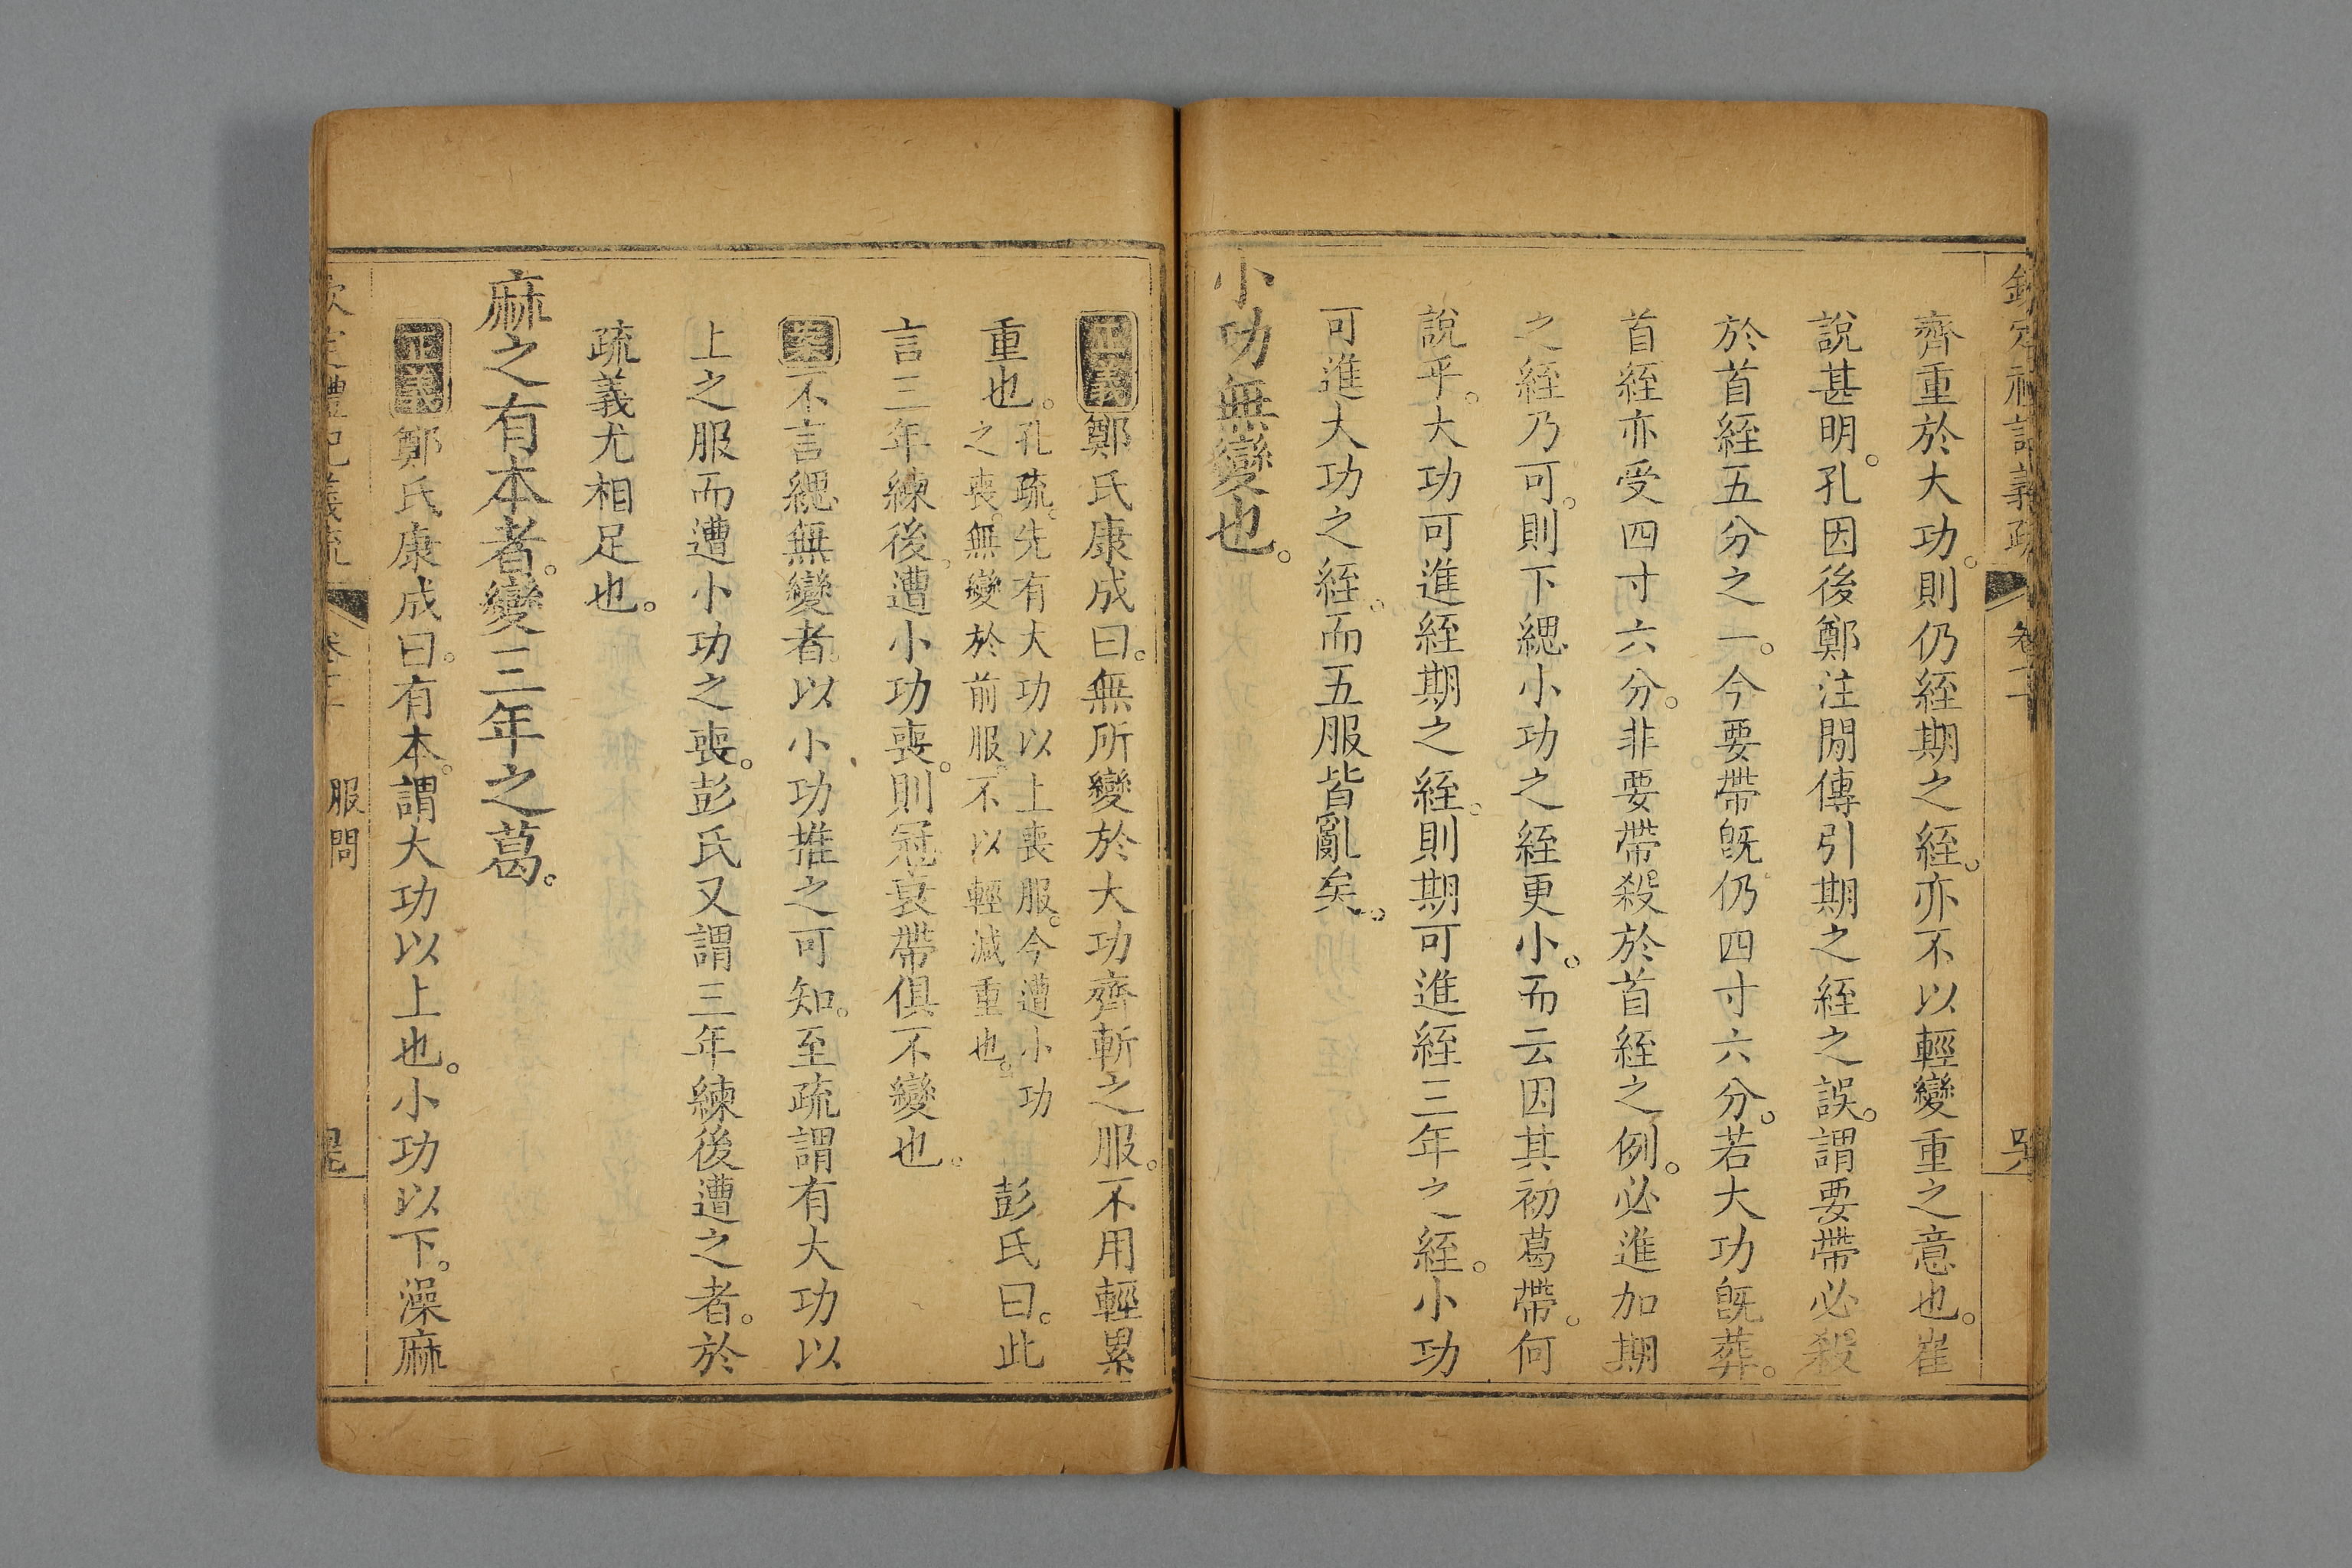 齊重於大功。則仍絰期之絰。亦不以輕變重之意也。崔
說甚明。孔因後鄭注閒傳引期之絰之誤。謂要帶必殺
於首絰五分之一。今要帶旣仍四寸六分。若大功旣葬。
首絰亦受四寸六分。非要帶殺於首絰之例。必進加期
之絰乃可。則下緦小功之絰更小。而云因其初葛帶。何
說乎。大功可進絰期之絰。則期可進絰三年之絰。小功
可進大功之絰。而五服皆亂矣。
小功無變也。
正義鄭氏康成曰。無所變於大功齊斬之服。不用輕累
重也。孔疏。先有大功以上喪服。今遭小功之喪。無變於前服。不以輕減重也。彭氏曰。此
言三年練後。遭小功喪。則冠衰帶俱不變也。
案不言緦無變者。以小功推之可知。至疏謂有大功以
上之服而遭小功之喪。彭氏又謂三年練後遭之者。於
疏義尤相足也。
麻之有本者。變三年之葛。
正義鄭氏康成曰。有本。謂大功以上也。小功以下。澡麻
服問